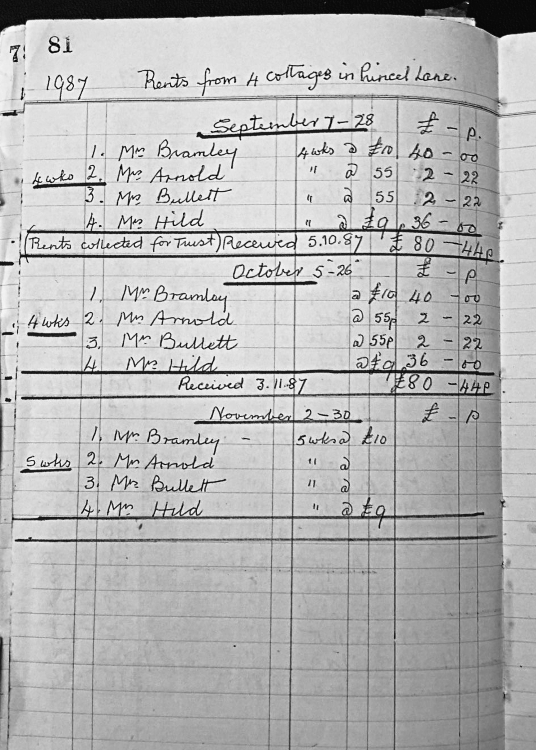 81
1987 Rents from 4 cottages in Puncel Lane.
September 7-28 £ - p.
1. Mrs Bramley 4 wks @ £10 40 - 00
4 wks 2. Mrs Arnold " @ 55 2 - 22
3. Mrs Bullett " @ 55 2 - 22
4. Mrs Hild " @ £9 36 - 00
(Rents collected for Trust) Received 5.10.87 £80 - 44p
October 5-26 £ - p
1. Mrs Bramley @ £10 40 - 00
4 wks 2. Mrs Arnold @ 55p 2 - 22
3. Mrs Bullett @ 55p 2 - 22
4. Mrs Hild @ £9 36 - 00
Received 3.11.87 £80 - 44p
November 2-30 £ - p
1. Mrs Bramley - 5 wks @ £10
5 wks 2. Mrs Arnold " @
3. Mrs Bullett " @
4. Mrs Hild " @ £9